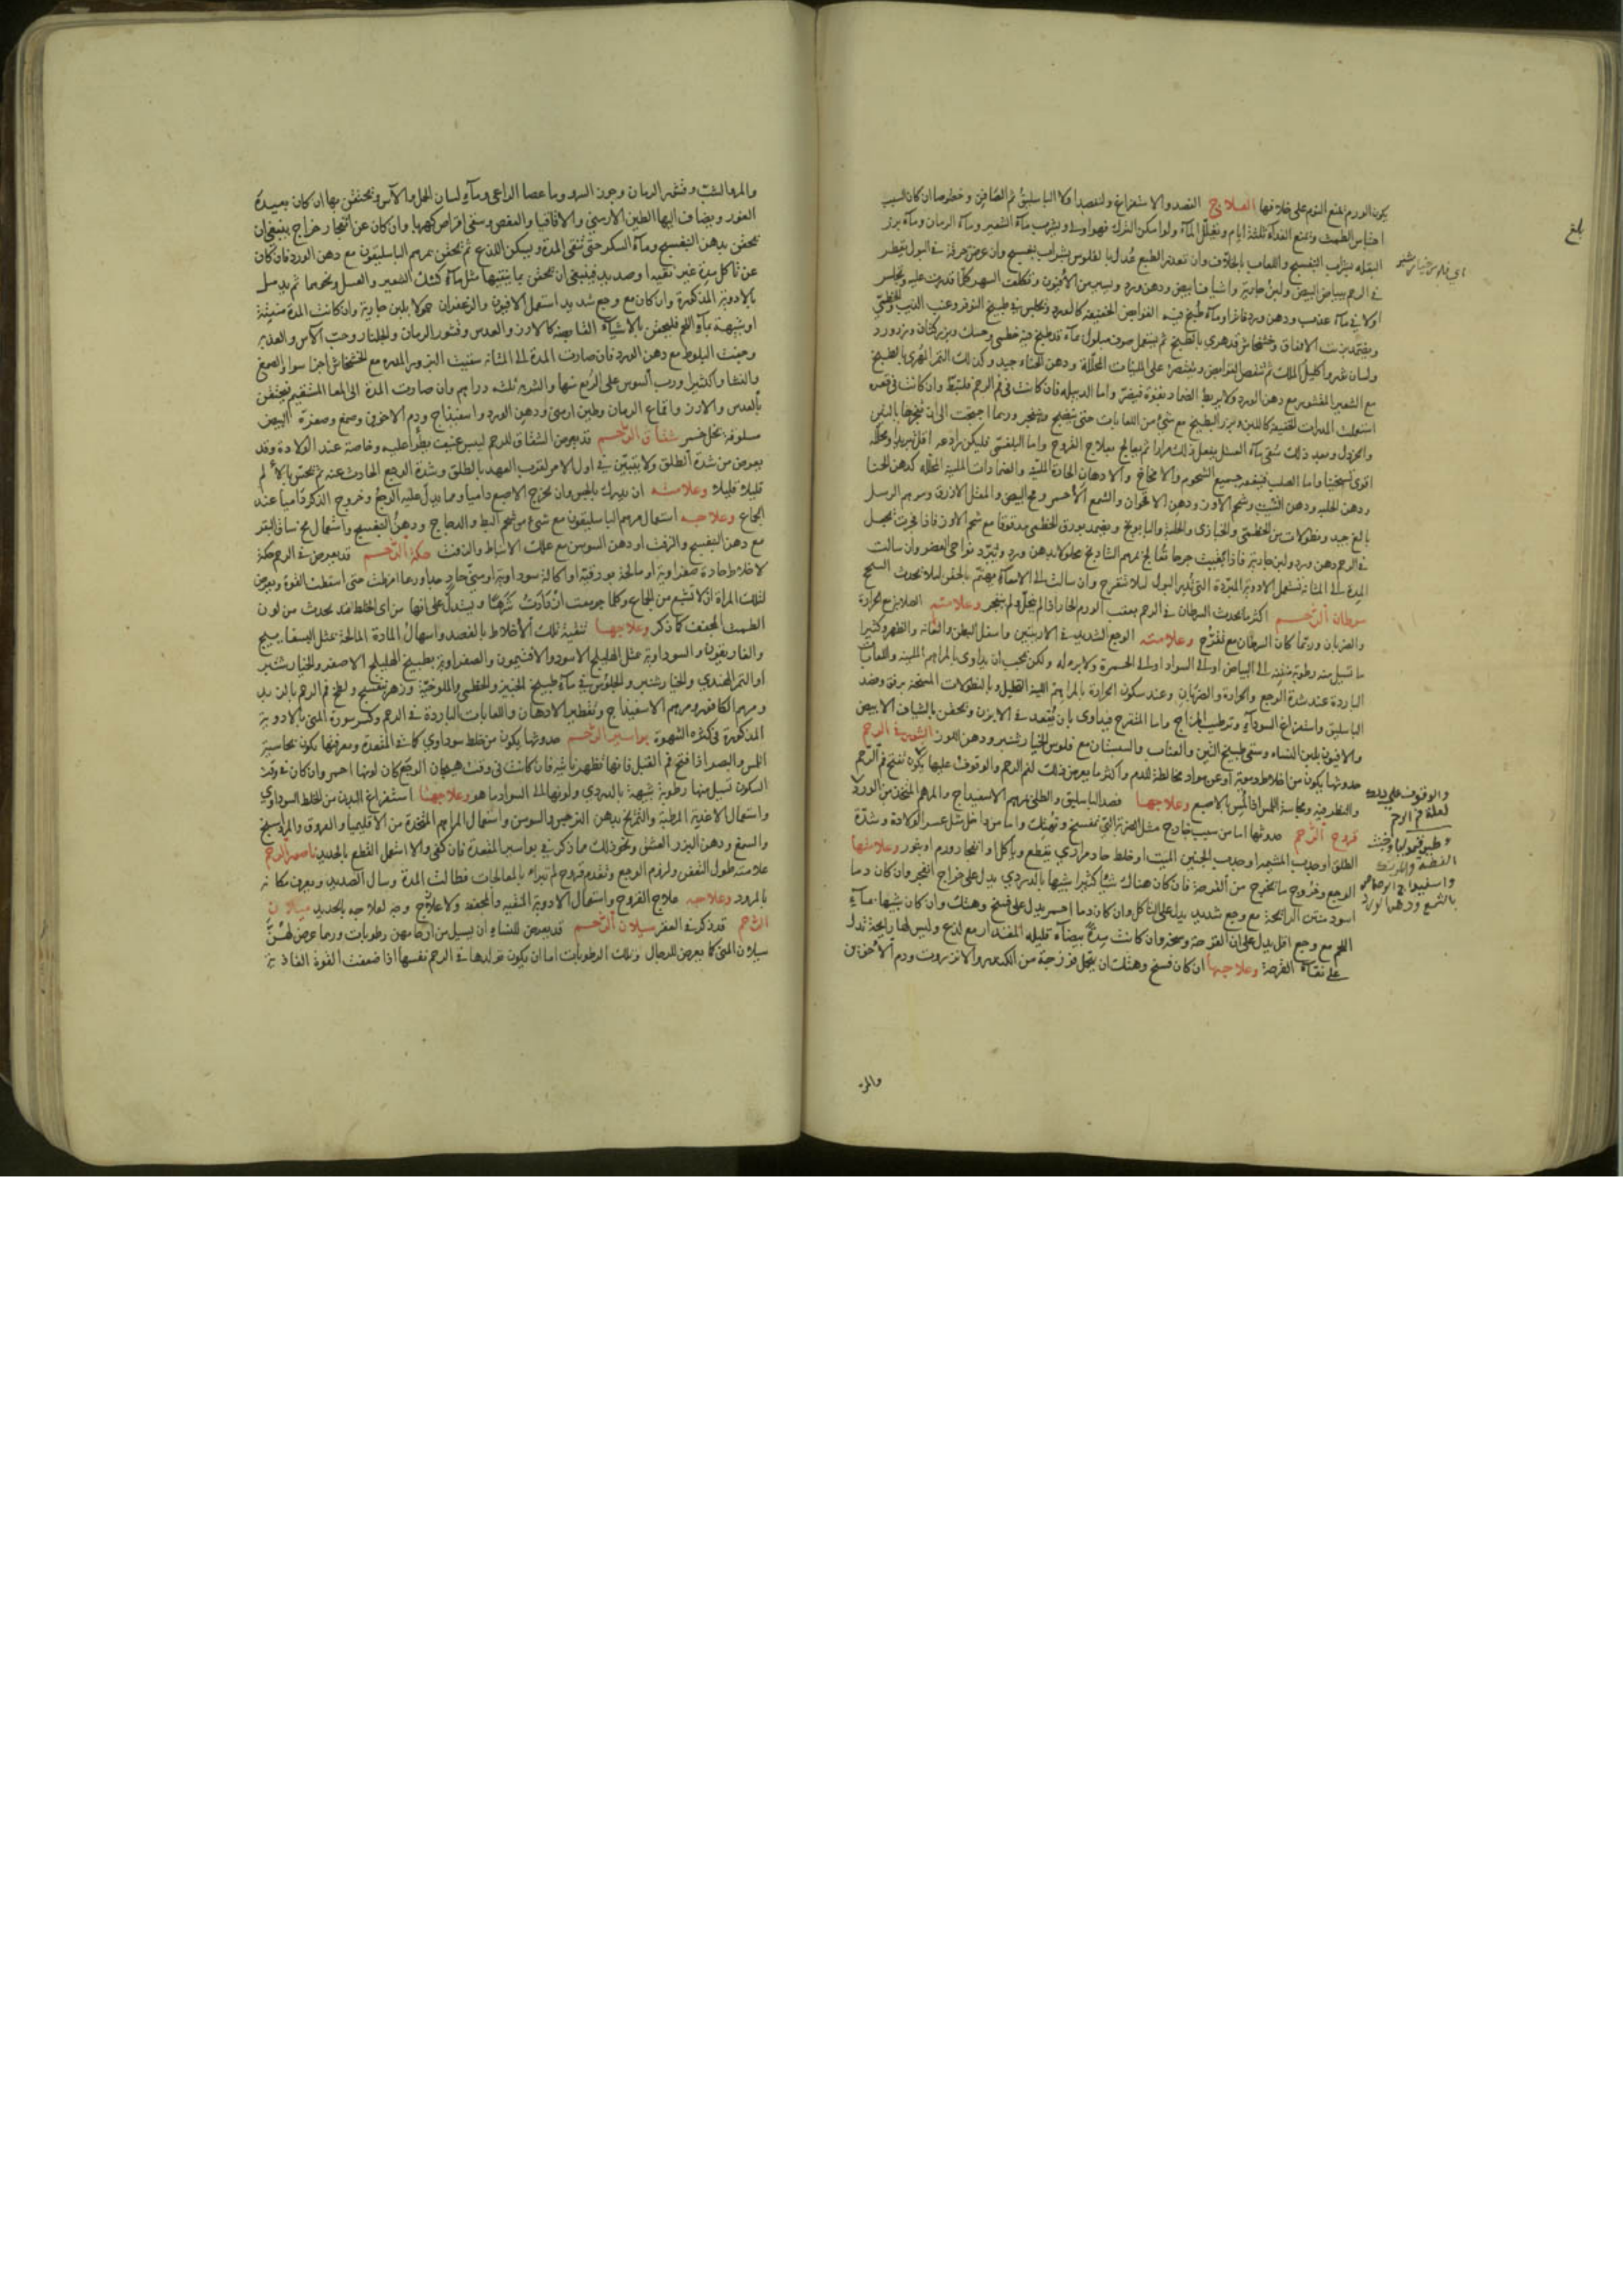 يكون الورم يمنع النوم على خلافها العلاج الفصد والاستفراغ ولتفصد اولا الباسليق ثم الصافن وخصوصا ان كان السبب
احتباس الطمث وتمنع الغذاء ثلثة ايام وتقليل الماء ولو امكن الترك فهو اولى ويشرب ماء الشعير وماء الرمان وماء بزر
البقلة بشراب البنفسج واللعاب بالجلاب وان تعذر الطبع عدل بالفلوس بشراب بنفسج وان عرض حرقة في البول يقطر
في الرحم ببياض البيض ولبن جارية واشياف ابيض ودهن ورد وليس من الافيون وتكلف السهر كلما قدرت عليه وتجلس
اولا في ماء عذب ودهن ورد فاترا وماء طبخ فيه القوابض الخفيفة كالورد وتجلس في طبيخ النوفر وعنب الثعلب والخطمي
ولسان ثور واكليل الملك ثم تنقص القوابض وتقتصر على الملينات المحللة ودهن الحناء جيد وكذلك التمر المهري بالطبيخ
مع الشعير المقشور مع دهن الورد ولا يربط الضماد بقوة فيضر واما الدبيلة فان كانت في فم الرحم فلتبط وان كانت في قعره
استعملت المدرات الخفيفة كاللبن وبزر البطيخ مع شئ من اللعابات حتى ينضج وينفجر وربما احتجت الى ان تفجرها بالتين
والخردل وبعد ذلك تسقى ماء العسل يفعل ذلك مرارا ثم يعالج بعلاج القروح واما البلغمي فليكن رادعه اقل تبريدا ومحلله
اقوى تسخينا واما الصلب فينفعه جميع الشحوم والامخاخ والادهان الحارة اللينة والضمادات الملينة المحللة كدهن الحنا
ودهن الحلبة ودهن الشبت وشحم الاوز ودهن الاقحوان والشمع الاحمر ومح البيض والمقل الازرق ومرهم الرسل
بالغ جيد ونطولات من الخطمي والخبازى والحلبة والبابونج ويضمد بورق الخطمي مدقوقا مع شحم الاوز فاذا انفجرت يجعل
في الرحم دهن ورد ولبن جارية
المدة الى المثانة تستعمل الادوية المبردة التي تدر البول لئلا تتقرح وان سالت الى الامعاء يهتم بالحقن لئلا يحدث السحج
سرطان الرحم اكثر ما يحدث السرطان في الرحم بعقب الورم الحار اذا لم يتحلل ولم ينفجر وعلامته الصلابة مع الحرارة
والضربان وربما كان السرطان مع تقرح وعلامته الوجع الشديد في الاربيتين واسفل البطن والعانة والظهر وكثيرا
ما تسيل منه رطوبة منتنة الى البياض او الى السواد او الى الحمرة ولا برء له ولكن يجب ان يداوى بالمراهم الملينة واللعابات
الباردة عند شدة الوجع والحرارة والضربان وعند سكون الحرارة بالمراهم اللينة القليل وبالنطولات المسخنة برفق وفصد
الباسليق واستفراغ السوداء وترطيب المزاج واما المتقرح فيداوى بان يقعد في الابزن وتحقن بالشياف الابيض
والافيون بلبن النساء وسقى طبيخ التين والعناب والسبستان مع فلوس الخيار شنبر ودهن اللوز البثور في الرحم
حدوثها يكون من اخلاط دموية او عن مواد مخالطة للدم واكثر ما يعرض ذلك لفم الرحم والوقوف عليها يكون بفتح فم الرحم
والنظر فيه ومجاسة اللمس اذا لمس بالاصبع وعلاجها فصد الباسليق والطلى بمرهم الاسفيداج والمرهم المتخذ من الورد
قروح الرحم حدوثها اما من سبب خارج مثل الضربة التي تفسخ وتهتك واما من داخل مثل عسر الولادة وشدة
الطلق او جذب المشيمة او جذب الجنين الميت او خلط حاد مراري يقطع ويأكل وانفجار ورم او بثور وعلامتها
الوجع وخروج ما يخرج من القرحة فان كان هناك شئ كثير شبيها بالدردي يدل على خراج انفجر وان كان دما
اسود منتن الرائحة مع وجع شديد يدل على التاكل وان كان دما احمر يدل على فسخ وهتك وان كان شبيها بماء
اللحم مع وجع اقل يدل على ان القرحة وسخة وان كانت مدة بيضاء قليلة المقدار مع لذع وليس لها رايحة تدل
على نقاء القرحة وعلاجها ان كان فسخ وهتك ان يتحمل فرزجة من الكندر والانزروت ودم الاخوين
والمر
بلغ
اى فلوس خيار شنبر
والوقوف على ذلك
وقيموليا وخبث
الفضة والمرتك
واسفيداج الرصاص
بالشمع ودهن الورد
والمر والشب وقشر الرمان وجوز السرو وماء عصا الراعي وماء لسان الحمل والآس وتحتقن بها ان كان بعيدة
الغور ويضاف اليها الطين الارمني والاقاقيا والعفص وسقى اقراص كهربا وان كان عن انفجار خراج ينبغي ان
تحقن بدهن البنفسج وماء السكر حتى تنقى المدة ويسكن اللذع ثم تحقن بمرهم الباسليقون مع دهن الورد فان كان
عن تآكل مدة غير نقية او صديد فينبغي ان تحقن بما ينقيها مثل ماء كشك الشعير والعسل ونحوهما ثم يدمل
بالادوية المذكورة وان كان مع وجع شديد استعمل الافيون والزعفران حمولا بلبن جارية وان كانت المدة منتنة
او شبيهة بماء اللحم فليحقن بالاشياء القابضة كالارز والعدس وقشور الرمان والجلنار وحب الآس
وجفت البلوط مع دهن الورد فان صارت المدة الى المثانة سقيت البزور المدرة مع الخشخاش اجزا سوا والصمغ
والنشا والكثيرا ورب السوس على الربع منها والشربة ثلثة دراهم وان صارت المدة الى المعا المستقيم فيحتقن
بالعدس والارز واقماع الرمان وطين ارمني ودهن الورد واسفيداج ودم الاخوين وصمغ وصفرة البيض
مسلوقة بخل خمر شقاق الرحم قد يعرض الشقاق للرحم ليبس عنيف يطرأ عليه وخاصة عند الولادة وقد
يعرض من شدة الطلق ولا يتبين في اول الامر لقرب العهد بالطلق وشدة الوجع الحادث عنه ثم يحس بالألم
قليلا قليلا وعلامته ان يدرك بالجس وان يخرج الاصبع داميا ومما يدل عليه الوجع وخروج الذكر داميا عند
الجماع وعلاجه استعمال مرهم الباسليقون مع شئ من شحم البط والدجاج ودهن البنفسج واستعمال مخ ساق البقر
مع دهن البنفسج والزفت او دهن السوسن مع علك الانباط والزفت حكة الرحم قد يعرض في الرحم حكة
لاخلاط حادة صفراوية او مالحة بورقية او اكالة سوداوية او مني حاد جدا وربما افرطت حتى اسقطت القوة ويعرض
لتلك المراة ان لا تشبع من الجماع وكلما جومعت ازدادت شرها ويستدل على انها من اي الخلط قد يحدث من لون
الطمث المجفف كما ذكر وعلاجها تنقية تلك الاخلاط بالفصد واسهال المادة المالحة بمثل البسفايج
والغاريقون والسوداوية بمثل الهليلج الاسود والافتيمون والصفراوية بطبيخ الهليلج الاصفر والخيار شنبر
او التمر الهندي والخيار شنبر والجلوس في ماء طبيخ الخبيز والخطمي والملوخية وزهر بنفسج ولطخ فم الرحم
ومرهم الكافور ومرهم الاسفيداج وتقطير الادهان واللعابات الباردة في الرحم وكسر سورة المني بالادوية
المذكورة في كثرة الشهوة بواسير الرحم حدوثها يكون من خلط سوداوي كما في المقعدة ومعرفتها يكون بمجاسة
اللمس والبصر اذا فتح فم القبل فانها تظهر ناتئة فان كانت في وقت هيجان الوجع كان لونها احمر وان كان في وقت
السكون تسيل منها رطوبة شبيهة بالدردي ولونها الى السواد ما هو وعلاجها استفراغ البدن من الخلط السوداوي
واستعمال الاغذية المرطبة والتمريخ بدهن النرجس والسوسن واستعمال المراهم المتخذة من الاقليميا والعروق والمرداسنج
والشمع ودهن البزر العتيق ونحو ذلك مما ذكر في بواسير المقعدة فان كفى والا استعمل القطع بالحديد ناصور الرحم
علامته طول التعفن ولزوم الوجع وتقدم قروح لم تبرا بالمعالجات فطالت المدة وسال الصديد ويعرف مكانه
بالمرود وعلاجه علاج القروح واستعمال الادوية المنقية والمجففة ولا علاج وجه لعلاجه بالحديد ميلان
الرحم قد ذكر في العقر سيلان الرحم قد يعرض للنساء ان يسيل من ارحامهن رطوبات وربما عرض لهن
سيلان المني كما يعرض للرجال وتلك الرطوبات اما ان يكون تولدها في الرحم نفسها اذا ضعفت القوة الغاذية